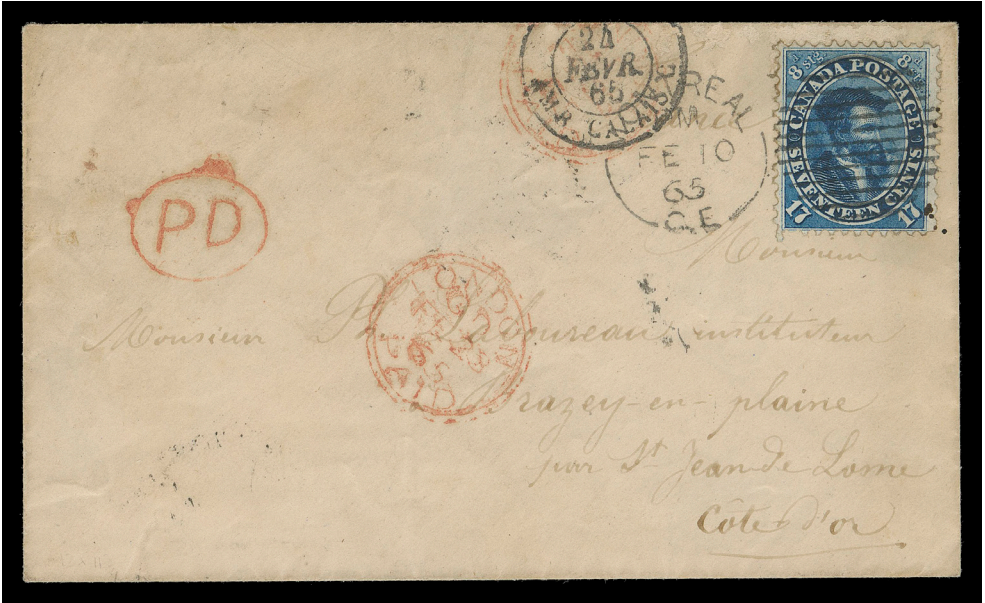 24
FEVR.
65
AMB. CALAIS
REAL
M
FE 10
65
C.E
8 stg. 8
CANADA POSTAGE
SEVENTEEN CENTS
17 17
PD
LONDON
PAID
Monsieur
Monsieur Ph. Laboureau, instituteur
Brazey-en-plaine
par St Jean de Lome
Côte d'or